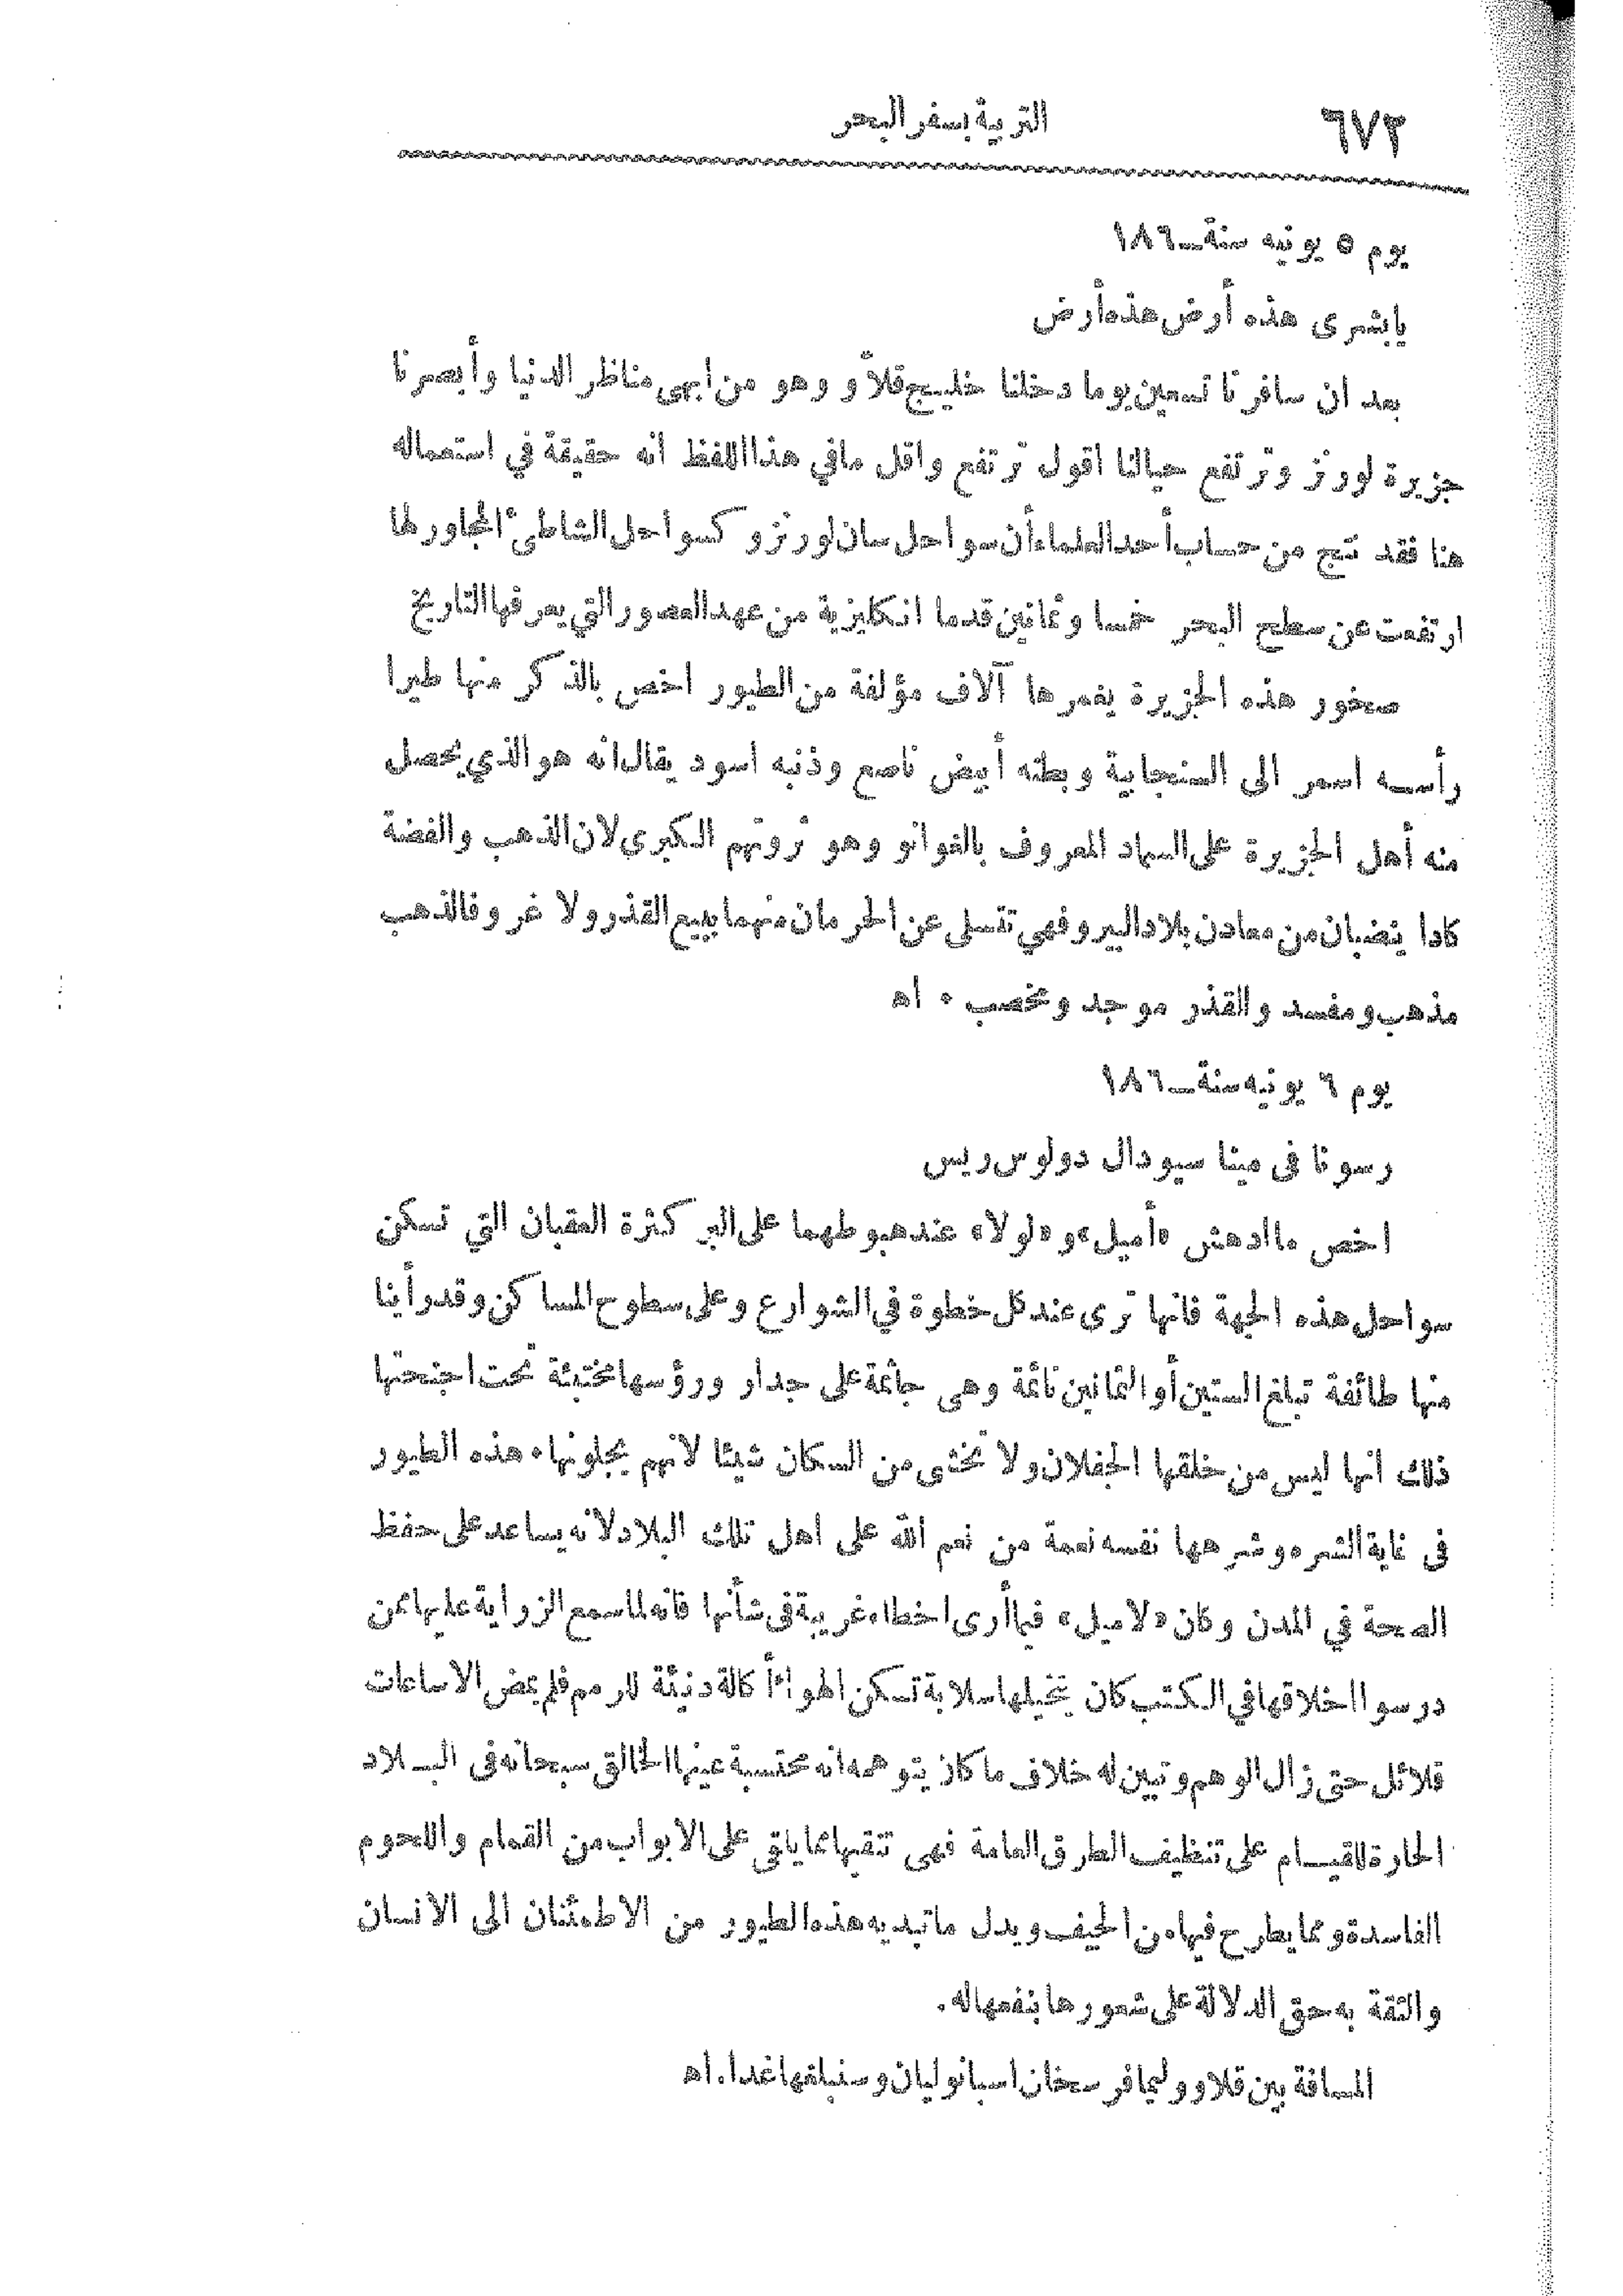 ٦٧٢
التربية بسفر البحر
يوم ٥ يونيه سنة ــ١٨٦
يابشرى هذه أرض هذه أرض
بعد ان سافرنا تسعين يوما دخلنا خليج قلاّو وهو من ابهى مناظر الدنيا وأبصرنا
جزيرة لورنز وترتفع حيالنا اقول ترتفع واقل مافي هذا اللفظ انه حقيقة في استعماله
هنا فقد نتج من حساب أحد العلماء أن سواحل سان لورنزو كسواحل الشاطئ المجاور لها
ارتفعت عن سطح البحر خمسا وثمانين قدما انكليزية من عهد العصور التي يعرفها التاريخ
صخور هذه الجزيرة يغمرها آلاف مؤلفة من الطيور اخص بالذكر منها طيرا
رأسه اسمر الى السنجابية وبطنه أبيض ناصع وذنبه اسود يقال انه هو الذي يحصل
منه أهل الجزيرة على السماد المعروف بالغوانو وهو ثروتهم الكبرى لان الذهب والفضة
كادا ينضبان من معادن بلاد البيرو فهي تتسلى عن الحرمان منهما ببيع القذر ولا غرو فالذهب
مذهب ومفسد والقذر موجد ومخصب ٠ اه
يوم ٦ يونيه سنة ــ١٨٦
رسونا فى مينا سيودال دولوس ريس
اخص ماادهش «أميل» و«لولا» عند هبوطهما على البر كثرة العقبان التي تسكن
سواحل هذه الجهة فانها ترى عند كل خطوة في الشوارع وعلى سطوح المساكن وقد رأينا
منها طائفة تبلغ الستين أو الثمانين نائمة وهى جاثمة على جدار ورؤسها مختبئة تحت اجنحتها
ذلك انها ليس من خلقها الجفلان ولا تخشى من السكان شيئا لانهم يجلونها ٠ هذه الطيور
فى غاية الشره وشرهها نفسه نعمة من نعم الله على اهل تلك البلاد لانه يساعد على حفظ
الصحة في المدن وكان «لاميل» فيما أرى اخطاء غريبة فى شأنها فانه لما سمع الزراية عليها ممن
درسوا اخلاقها في الكتب كان يتخيلها سلابة تسكن الهواء أكالة دنيئة للرمم فلم يمض الا ساعات
قلائل حتى زال الوهم وتبين له خلاف ما كان يتوهمه انه محتسبة عينها الخالق سبحانه فى البــلاد
الحارة للقيــام على تنظيف الطرق العامة فهى تنقيها مما يلقى على الابواب من القمام واللحوم
الفاسدة ومما يطرح فيها من الجيف ويدل ماتبديه هذه الطيور من الاطمئنان الى الانسان
والثقة به حق الدلالة على شعورها بنفعها له.
المسافة بين قلاو وليما فرسخان اسبانوليان وسنبلغها غدا.اه